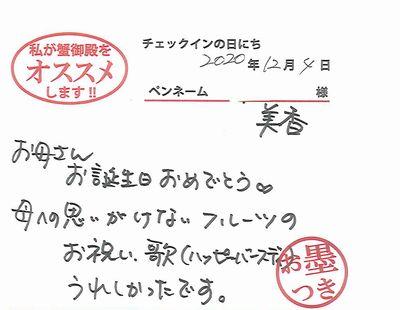 私が蟹御殿を
オススメ
します!!
チェックインの日にち
2020年12月4日
ペンネーム 様
美香
お母さん
お誕生日おめでとう♡
母への思いがけないフルーツの
お祝い、歌(ハッピーバースディ)
うれしかったです。
お墨
つき